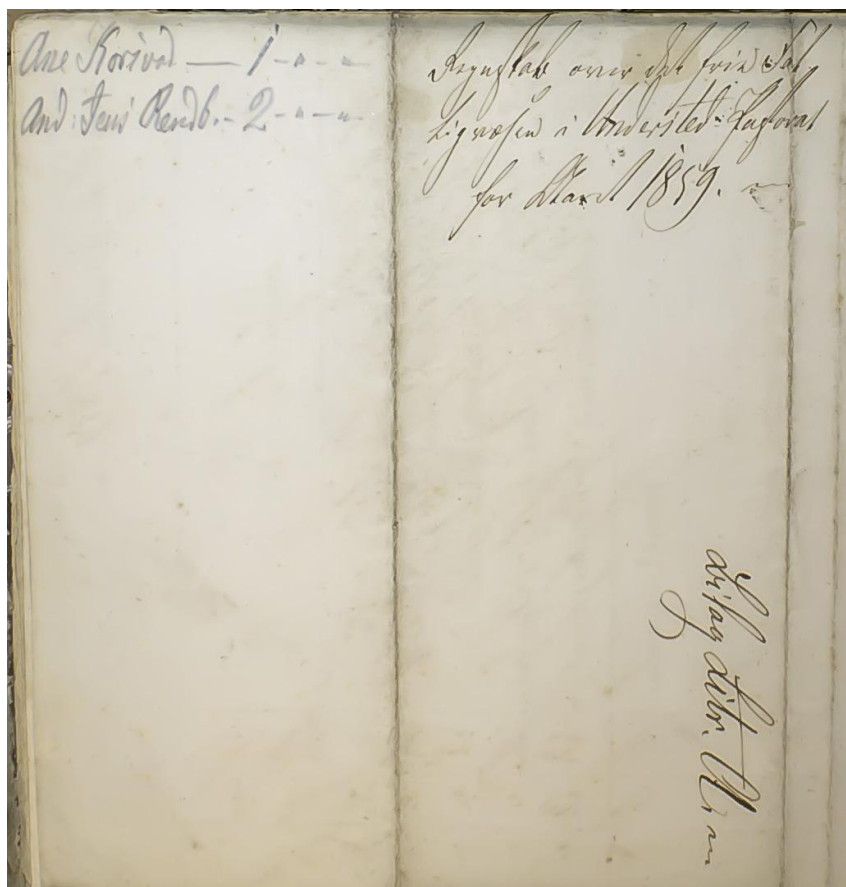 Ane Korsvad — 1 - " - "
And: Jens Rendb. - 2 - " - "
Regnskab over det frie Fat-
tigvæsen i Understed Pastorat
for Aaret 1859.
Bilag Litr. A